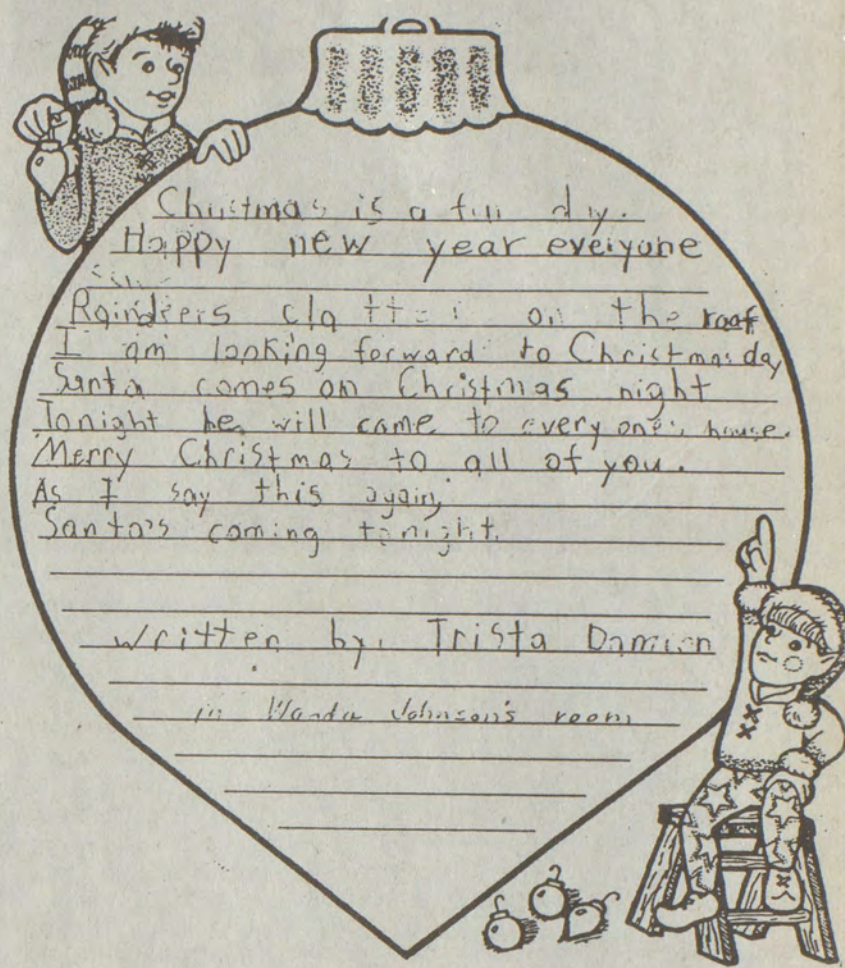 Christmas is a fun day.
Happy new year everyone
Raindeers clatter on the roof
I am looking forward to Christmas day
Santa comes on Christmas night
Tonight he will come to everyone's house.
Merry Christmas to all of you.
As I say this again,
Santa's coming tonight.
written by: Trista Damien
in Wanda Johnson's room